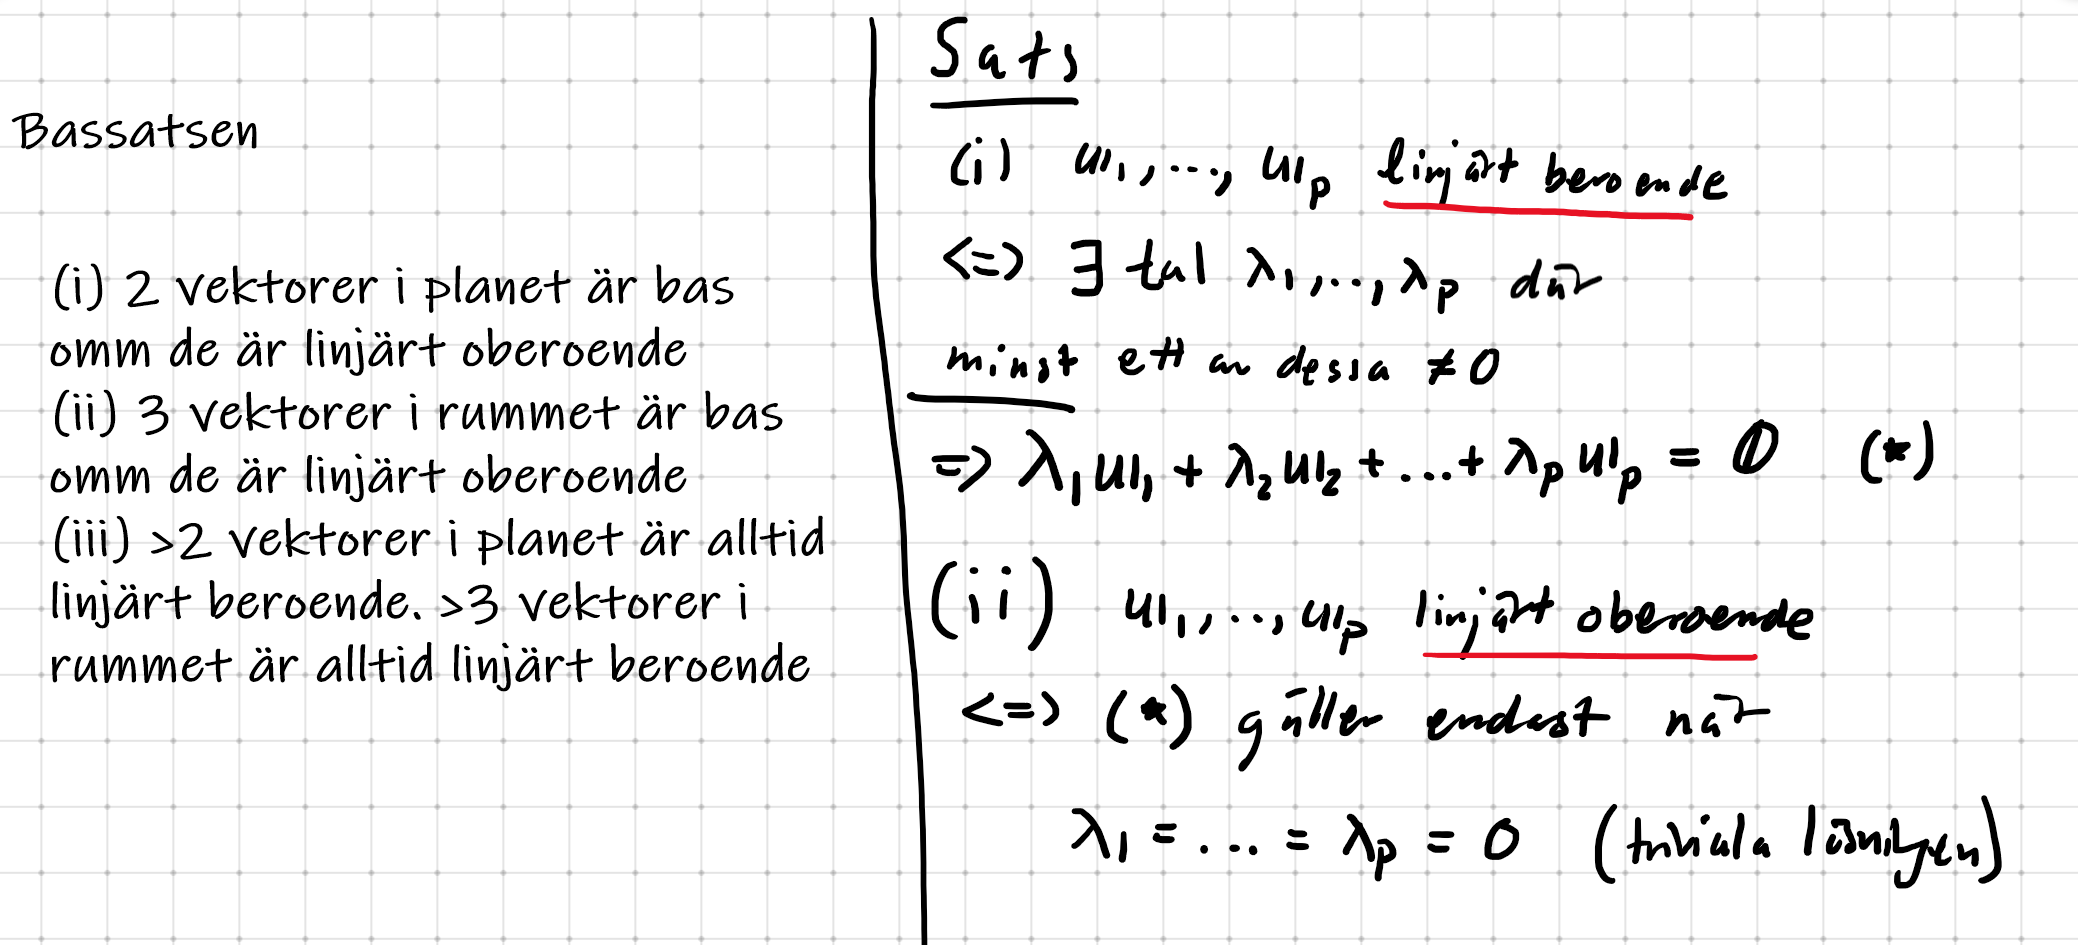 Bassatsen
(i) 2 vektorer i planet är bas
omm de är linjärt oberoende
(ii) 3 vektorer i rummet är bas
omm de är linjärt oberoende
(iii) >2 vektorer i planet är alltid
linjärt beroende. >3 vektorer i
rummet är alltid linjärt beroende
Sats
(i) 𝕦₁,..., 𝕦ₚ linjärt beroende
<=> ∃ tal λ₁,..,λₚ där
minst ett av dessa ≠ 0
=> λ₁𝕦₁ + λ₂𝕦₂ + ... + λₚ𝕦ₚ = 𝟘 (*)
(ii) 𝕦₁,..,𝕦ₚ linjärt oberoende
<=> (*) gäller endast när
λ₁ = ... = λₚ = 0 (triviala lösningen)